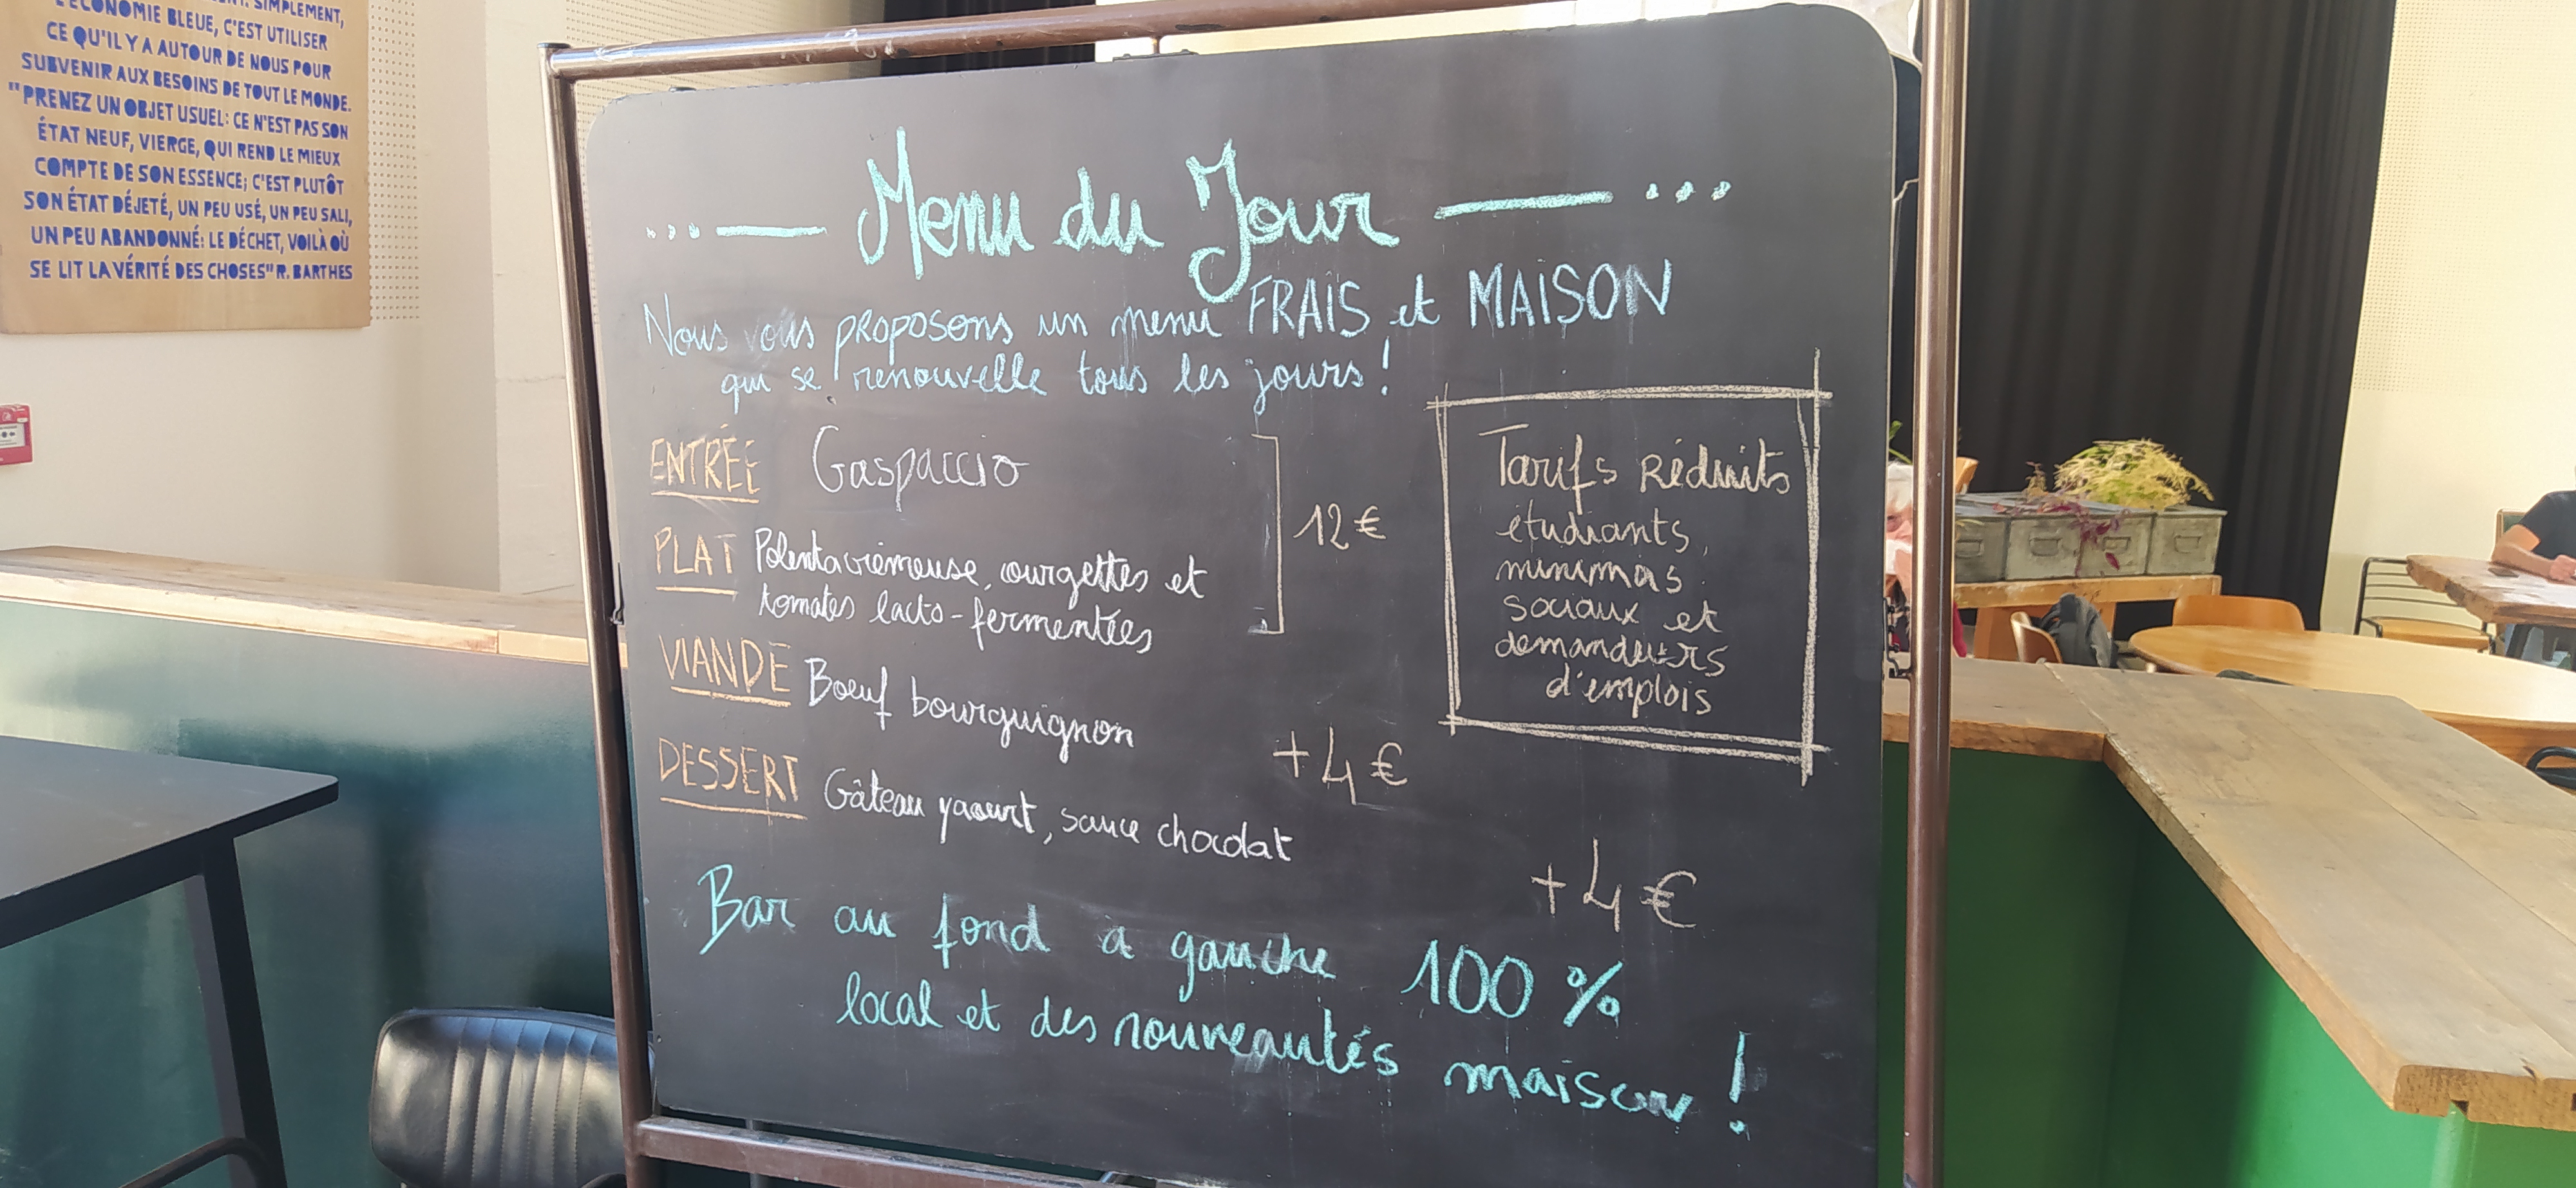 SIMPLEMENT,
L'ÉCONOMIE BLEUE, C'EST UTILISER
CE QU'IL Y A AUTOUR DE NOUS POUR
SUBVENIR AUX BESOINS DE TOUT LE MONDE.
"PRENEZ UN OBJET USUEL: CE N'EST PAS SON
ÉTAT NEUF, VIERGE, QUI REND LE MIEUX
COMPTE DE SON ESSENCE; C'EST PLUTÔT
SON ÉTAT DÉJETÉ, UN PEU USÉ, UN PEU SALI,
UN PEU ABANDONNÉ: LE DÉCHET, VOILÀ OÙ
SE LIT LA VÉRITÉ DES CHOSES" R. BARTHES
... — Menu du Jour — ...
Nous vous proposons un menu FRAIS et MAISON
qui se renouvelle tous les jours !
ENTRÉE Gaspaccio
12 €
PLAT Polenta crémeuse, courgettes et
tomates lacto-fermentées
VIANDE Boeuf bourguignon
+4 €
DESSERT Gâteau yaourt, sauce chocolat
+4 €
Tarifs Réduits
étudiants,
minimas
sociaux et
demandeurs
d'emplois
Bar au fond a gauche 100 %
local et des nouveautés maison !